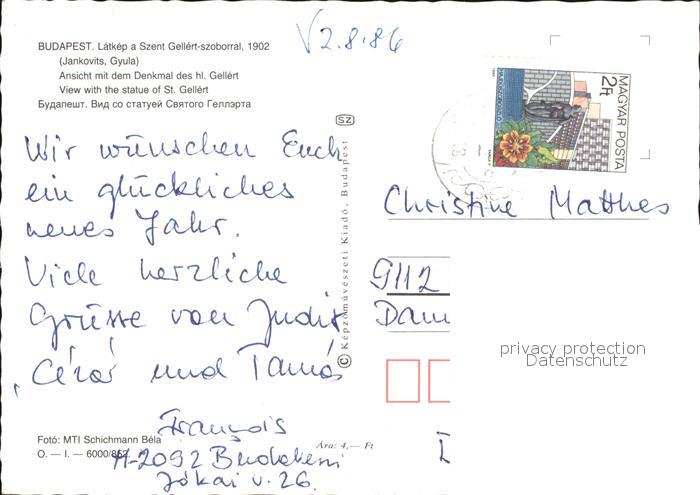 V 2.8.86
BUDAPEST. Látkép a Szent Gellért-szoborral, 1902
(Jankovits, Gyula)
Ansicht mit dem Denkmal des hl. Gellért
View with the statue of St. Gellért
Будапешт. Вид со статуей Святого Геллэрта
SZ
MAGYAR POSTA
2Ft
Wir wünschen Euch
ein glückliches
neues Jahr.
Viele herzliche
Grüsse von Judit,
Cézár und Tamás
François
H-2092 Budakeszi
Jókai u. 26.
© Képzőművészeti Kiadó, Budapest
Christine Matthes
9112
privacy protection
Datenschutz
Fotó: MTI Schichmann Béla
O. — I. — 6000/852
Ára: 4,— Ft